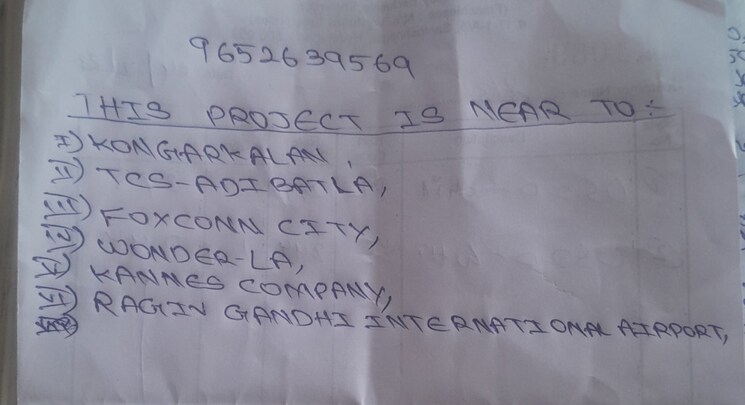 9652639569
THIS PROJECT IS NEAR TO:-
I) KONGARKALAN,
II) TCS-ADIBATLA,
III) FOXCONN CITY,
IV) WONDER-LA,
V) KANNES COMPANY,
VI) RAGIV GANDHI INTERNATIONAL AIRPORT,